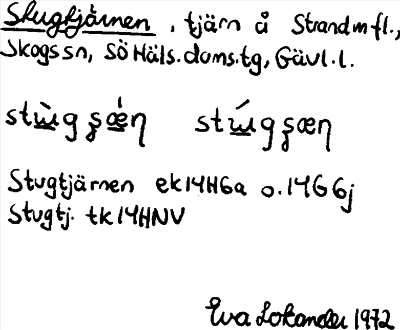 Stugtjärnen, tjärn å Strandmfl.,
Skogssn, SöHäls.doms.tg, Gävl.l.
Stugtjärnen ek14H6a o.14G6j
Stugtj. tk14HNV
Eva Lokander 1972